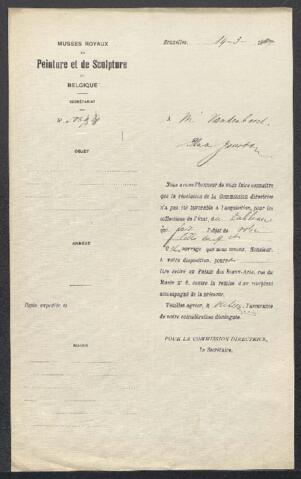 MUSÉES ROYAUX
DE
Peinture et de Sculpture
DE
BELGIQUE
SECRÉTARIAT
N°
OBJET
ANNEXE
Copie expédiée à
Bruxelles, 14-3-
à M
Nous avons l'honneur de vous faire connaître
que la résolution de la Commission directrice
n'a pas été favorable à l'acquisition, pour les
collections de l'État, du tableau
qui fait l'objet de votre
lettre du
ouvrage que nous tenons, Monsieur,
à votre disposition, pourra
être retiré au Palais des Beaux-Arts, rue du
Musée n° 9, contre la remise d'un récépissé
accompagné de la présente.
Veuillez agréer, M l'assurance
de notre considération distinguée.
POUR LA COMMISSION DIRECTRICE,
Le Secrétaire,